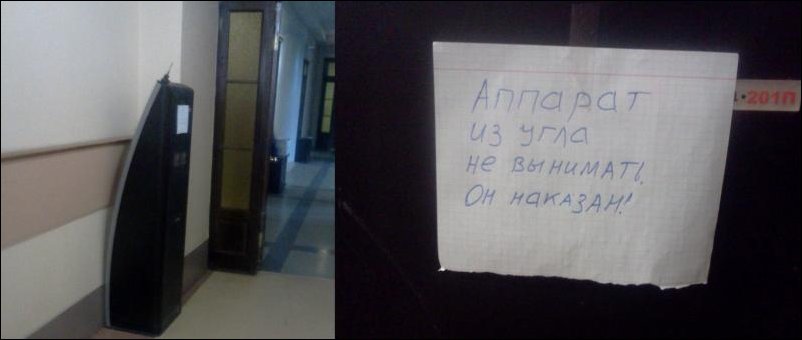 Аппарат
из угла
не вынимать.
Он наказан!
•201П